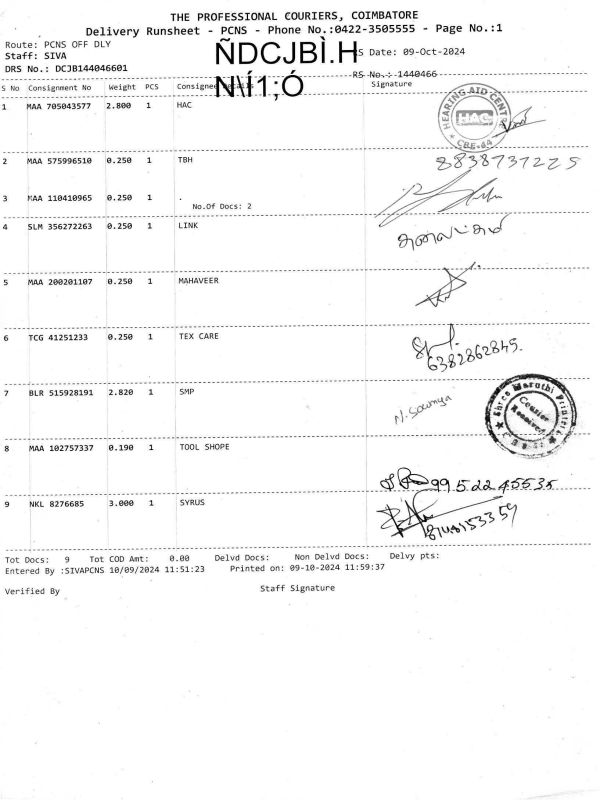 THE PROFESSIONAL COURIERS, COIMBATORE
Delivery Runsheet - PCNS - Phone No.:0422-3505555 - Page No.:1
Route: PCNS OFF DLY
ÑDCJBÌ.H
S Date: 09-Oct-2024
Staff: SIVA
DRS No.: DCJB144046601
N\Í1;Ó
RS No.: 1440466
S No Consignment No Weight PCS Consignee Details Signature
1 MAA 705043577 2.800 1 HAC
HEARING AID CENTRE
HAC
★ CBE-44 ★
2 MAA 575996510 0.250 1 TBH
8838737225
3 MAA 110410965 0.250 1 .
No.Of Docs: 2
4 SLM 356272263 0.250 1 LINK
5 MAA 200201107 0.250 1 MAHAVEER
6 TCG 41251233 0.250 1 TEX CARE
6382862845.
7 BLR 515928191 2.820 1 SMP
N. Sowmya
Shree Maruthi Printers
Courier
Received
8 MAA 102757337 0.190 1 TOOL SHOPE
99522 45535
9 NKL 8276685 3.000 1 SYRUS
8148153359
Tot Docs: 9 Tot COD Amt: 0.00 Delvd Docs: Non Delvd Docs: Delvy pts:
Entered By :SIVAPCNS 10/09/2024 11:51:23 Printed on: 09-10-2024 11:59:37
Verified By Staff Signature